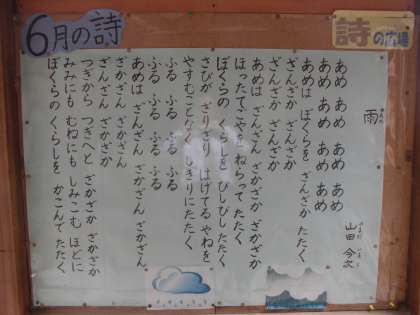 6月の詩
詩の広場
雨
山田 今次
あめ あめ あめ あめ
あめ あめ あめ あめ
あめは ぼくらを ざんざか たたく
ざんざか ざんざか
ざんざん ざんざか
あめは ざんざん ざかざか ざかざか
ほったてごやを ねらって たたく
ぼくらの くらしを びしびし たたく
さびが ざりざり はげてる やねを
やすむことなく しきりにたたく
ふる ふる ふる ふる
ふる ふる ふる ふる
あめは ざんざん ざかざん ざかざん
ざかざん ざかざん
ざんざん ざかざか
つぎから つぎへと ざかざか ざかざか
みみにも むねにも しみこむ ほどに
ぼくらの くらしを かこんで たたく